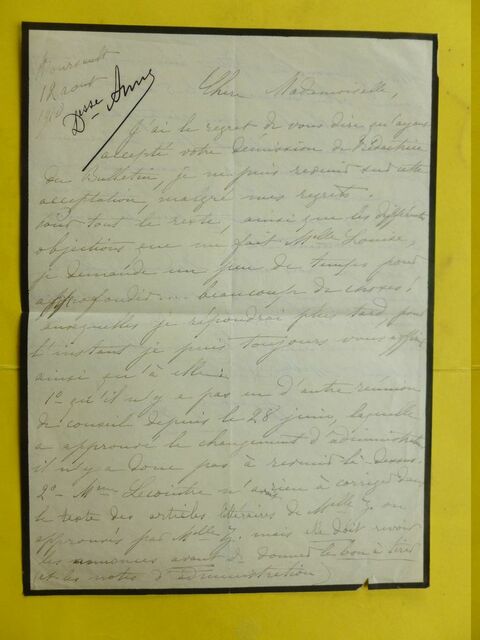 12 aout
Desse Anne
Chère Mademoiselle,
J'ai le regret de vous dire qu'ayant
accepté votre démission de Rédactrice
du Bulletin, je ne puis revenir sur cette
acceptation, malgré mes regrets.
Pour tout le reste, ainsi que les différentes
objections que me fait Melle Louise,
je demande un peu de temps pour
approfondir... beaucoup de choses!
auxquelles je répondrai plus tard, pour
l'instant je puis toujours vous affirmer
ainsi qu'à
1º qu'il n'y a pas eu d'autre réunion
de conseil depuis le 28 juin, laquelle
a approuvé le changement d'administration
il n'y a donc pas à revenir là-dessus.
2º - Mme Lecointre n'a rien à corriger dans
le texte des articles littéraires de Melle Z. ou
approuvés par Melle Z. mais elle doit revoir
les annonces avant de donner le bon à tirer
(et les notes d'administration)